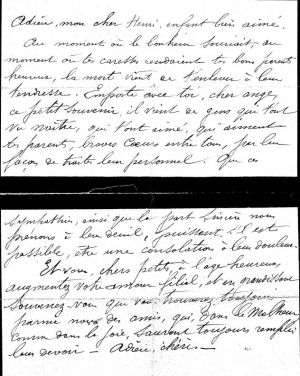 Adieu, mon cher Henri, enfant bien aimé.
Au moment où le bonheur souriait, au
moment où tes caresses rendaient tes bons parents
heureux, la mort vient de t'enlever à leur
tendresse. Emporte avec toi, cher ange,
ce petit souvenir, il vient de gens qui t'ont
vu naître, qui t'ont aimé, qui aiment
tes parents, braves cœurs entre tous, par leur
façon de traiter leur personnel. Que ces
sympathies, ainsi que la part sincère nous
prenons à leur deuil, puissent, s'il est
possible, être une consolation à leur douleur.
Et vous, chers petits, à l'âge heureux,
augmentez votre amour filial, et en grandissant
souvenez-vous que vous trouverez toujours
parmi nous des amis, qui, dans le Malheur
comme dans la joie, sauront toujours remplir
leur devoir - Adieu, chéri -